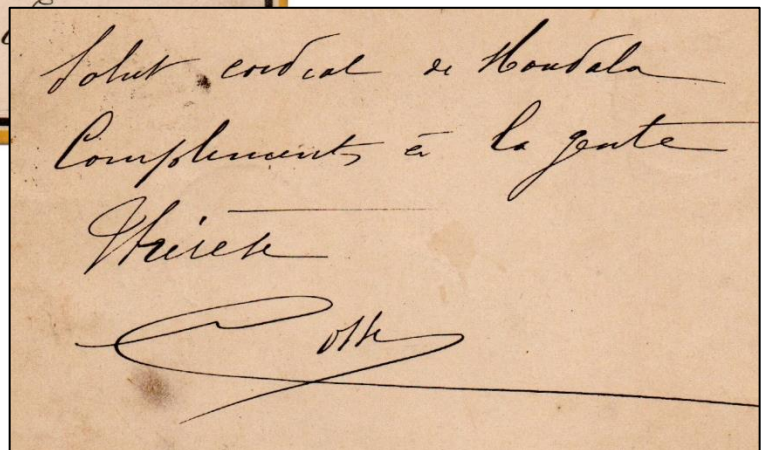 Salut cordial de Houdala
Compliments à la gente
Thérèse
Cotte